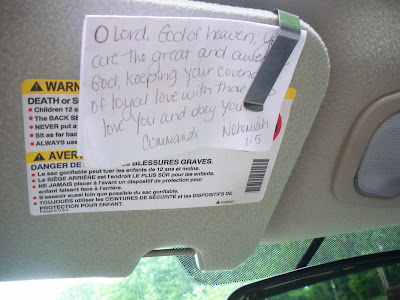 O Lord, God of heaven, you
are the great and awesome
God, keeping your covenant
of loyal love with those who
love You and obey Your
Commands Nehemiah
1:5
WARN
DEATH or S
• Children 12 a
• The BACK SE
• NEVER put a
• Sit as far back
• ALWAYS use
AVERT
DANGER DE BLESSURES GRAVES.
• Le sac gonflable peut tuer les enfants de 12 ans et moins.
• Le SIÈGE ARRIÈRE est l'endroit LE PLUS SÛR pour les enfants.
• NE JAMAIS placer à l'avant un dispositif de protection pour
enfant faisant face à l'arrière.
• S'asseoir aussi loin que possible du sac gonflable.
• TOUJOURS utiliser les CEINTURES DE SÉCURITÉ et les DISPOSITIFS DE
PROTECTION POUR ENFANT.